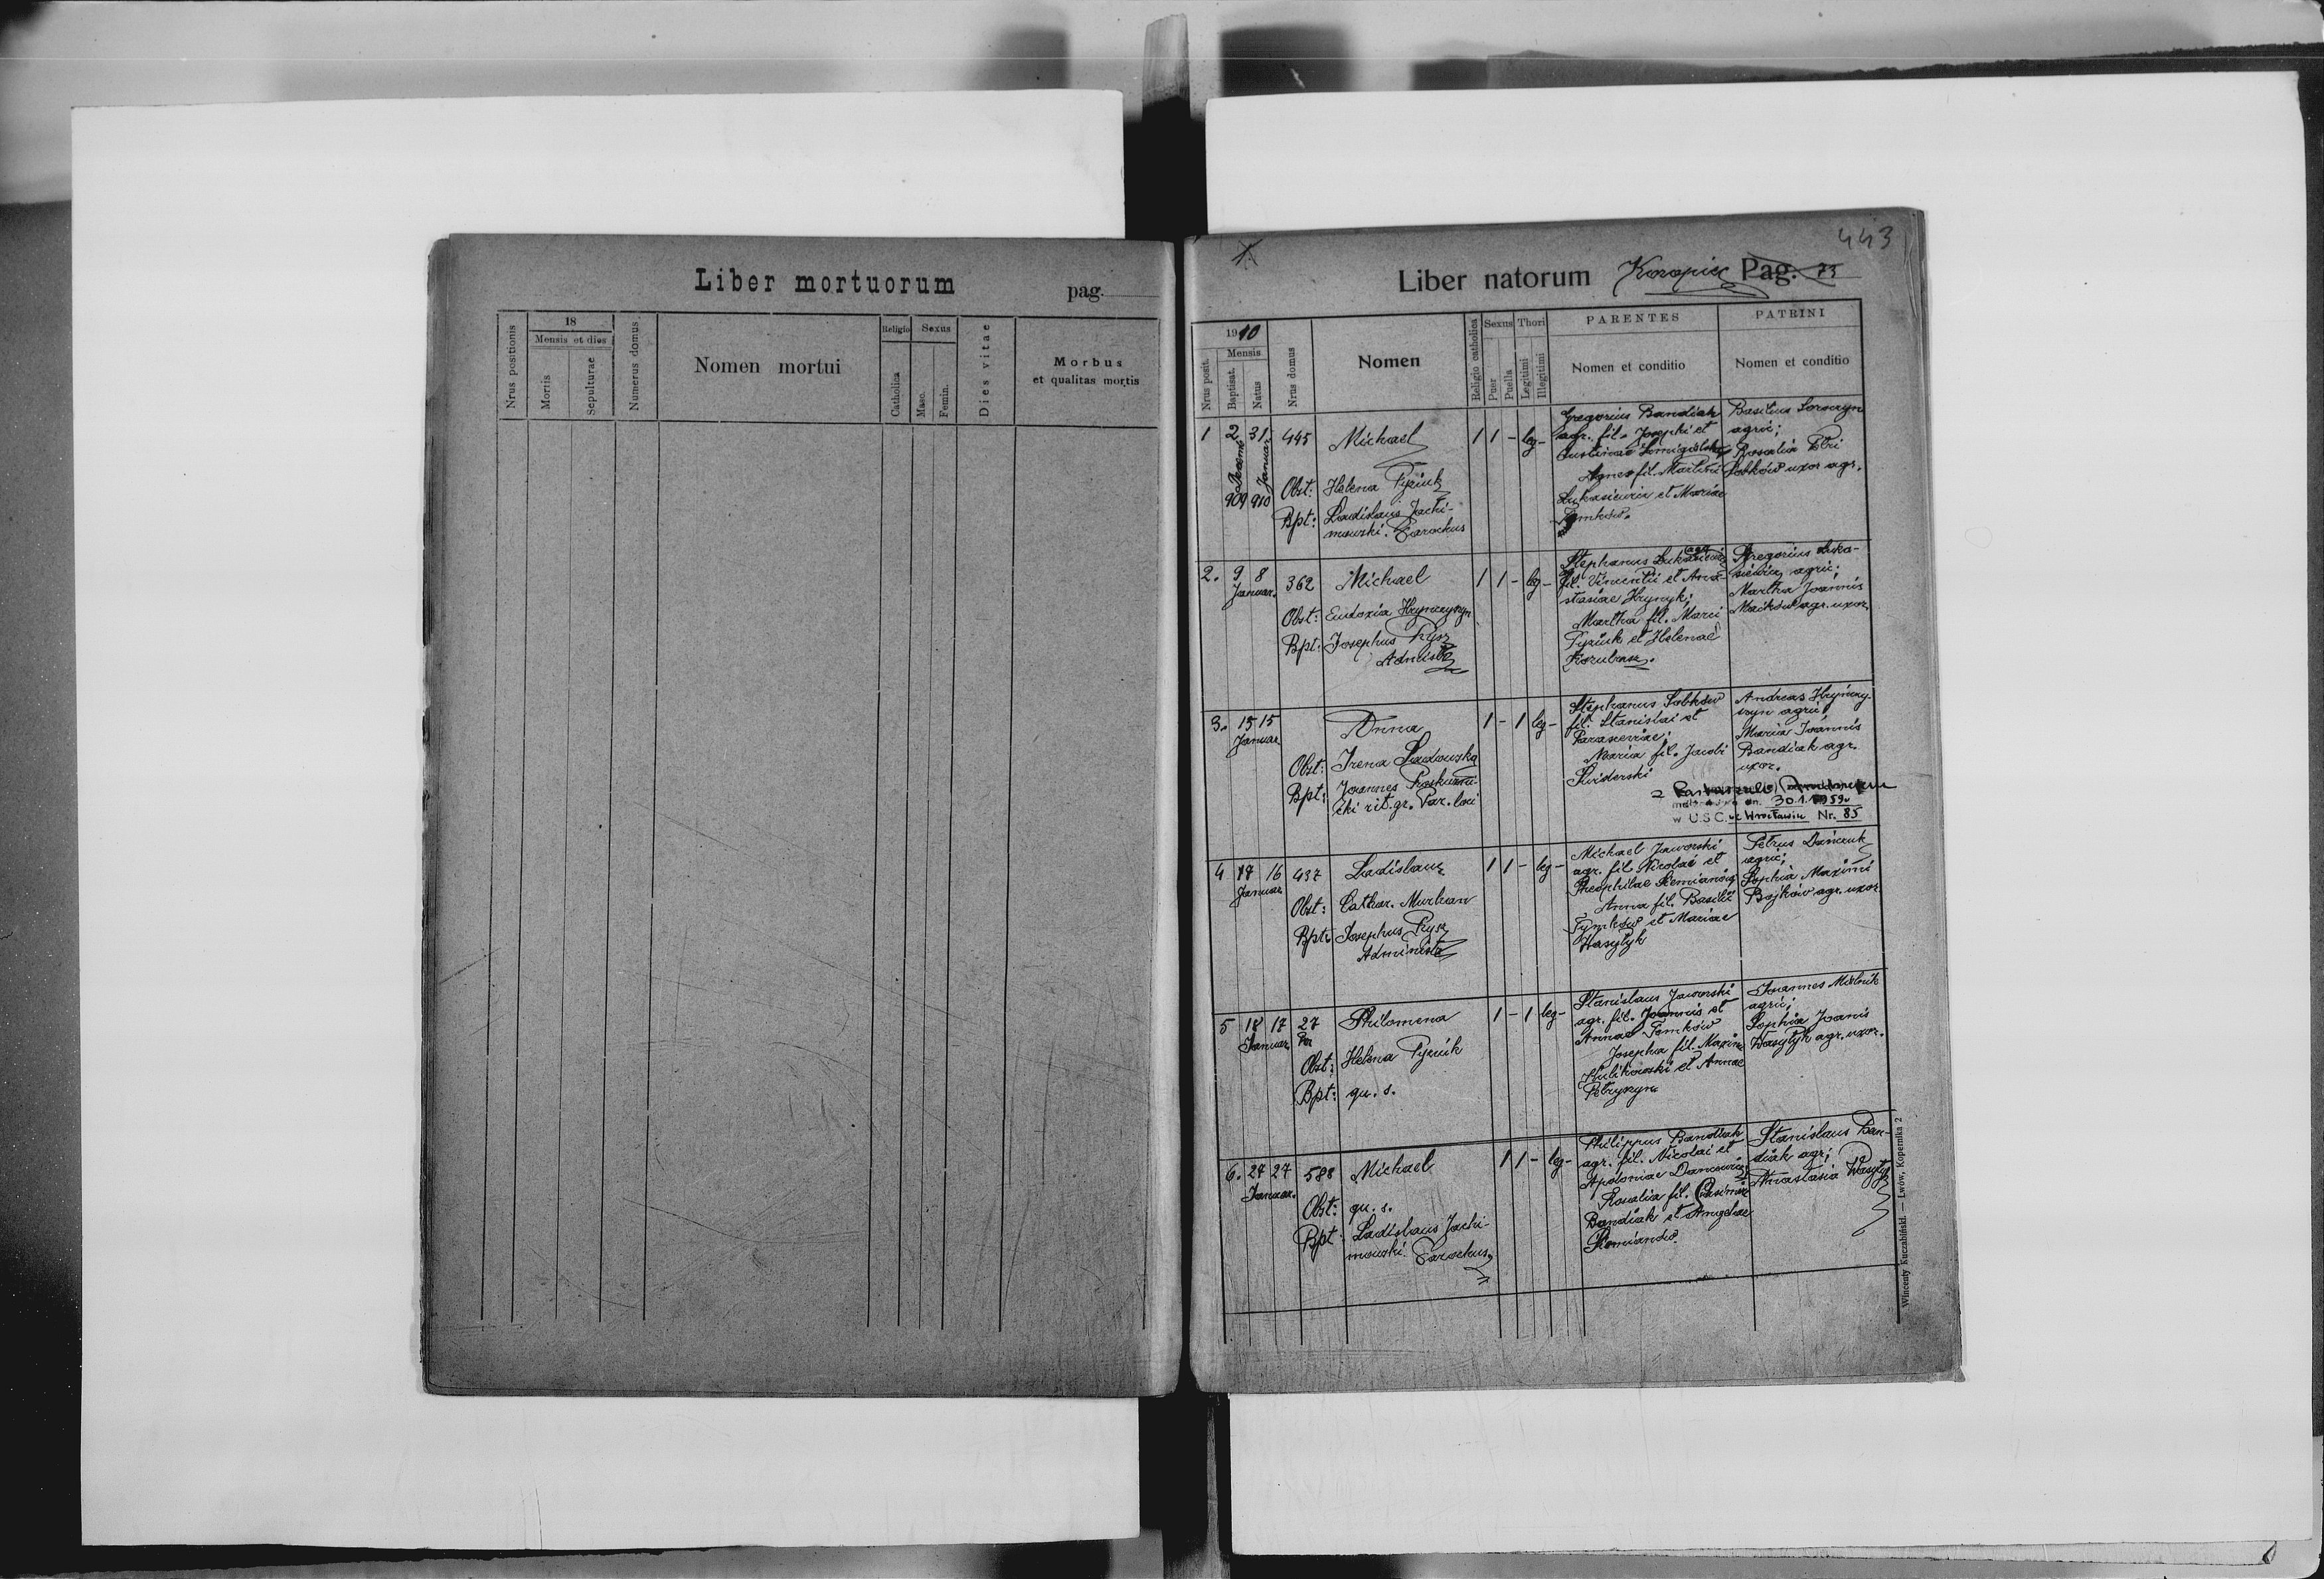 Liber mortuorum
pag.
Nrus positionis
18
Mensis et dies
Mortis
Sepulturae
Numerus domus
Nomen mortui
Religio
Catholica
Sexus
Masc.
Femin.
Dies vitae
Morbus
et qualitas mortis
443
1.
Liber natorum Koropiec Pag. 73
Nrus posit.
1910
Mensis
Baptisat.
Natus
Nrus domus
Nomen
Religio catholica
Sexus
Puer
Puella
Thori
Legitimi
Illegitimi
PARENTES
Nomen et conditio
PATRINI
Nomen et conditio
1 2 31 445 Michael 1 1 - leg -
909 910
Januar
Obst: Helena Pyziuk
Bpt: Ladislaus Jachi-
mowski. Parochus
Gregorius Bandiak
agr. fil. Josephi et
Agnes fil. Martini
Lukasiewicz et Mariae
Basilius
agric;
Rosalia Petri
Sobków uxor agr.
2. 9 8 362 Michael 1 1 - leg -
Januar.
Obst: Eudoxia Hrynczyszyn
Bpt: Josephus Prysz
Stephanus Lukasiewicz agr.
fil. Vincentii et Ana-
stasiae Hrynyk;
Martha fil. Marci
Pyziuk et Helenae
Gregorius Luka-
siewicz agric;
Martha Joannis
Maćków agr. uxor.
3. 15 15 Anna 1 - 1 leg -
Januar.
Obst: Irena Sadowska
Bpt: Joannes
cki rit. gr. Par. loci
Stephanus Sobków
fil. Stanislai et
Parasceviae;
Maria fil. Jacobi
Swiderski
Andreas Hryńczy-
szyn agric.
Maria Joannis
Bandiak agr.
uxor.
dn. 30.1.1959r
w U.S.C. we Wrocławiu Nr. 85
4 17 16 437 Ladislaus 1 1 - leg -
Januar
Obst: Cathar. Murhan
Bpt: Josephus Prysz
Michael Jaworski
agr. fil. Nicolai et
Theophilae Slemianów
Anna fil. Basilii
Tymków et Mariae
Wasylyk
Petrus Danczuk
agric;
Sophia Maximi
Bojków agr. uxor.
5 18 17 27 Philomena 1 - 1 leg -
Januar.
Obst: Helena Pyziuk
Bpt: qu. s.
Stanislaus Jaworski
agr. fil. Joannis et
Annae Tomków
Josepha fil. Maximi
Kulikowski et Annae
Petryszyn
Joannes Mielnik
agric;
Sophia Joanis
Wasylyk agr. uxor.
6. 27 27 588 Michael 1 1 - leg -
Januar.
Obst: qu. s.
Bpt: Ladislaus Jachi-
mowski. Parochus
Philippus Bandiak
agr. fil. Nicolai et
Apoloniae
Rosalia fil. Casimiri
Bandiak et Angelae
Slemianów.
Stanislaus Ban-
diak agr;
Anastasia Wasylyk
Wincenty Kuczabiński. — Lwów, Kopernika 2